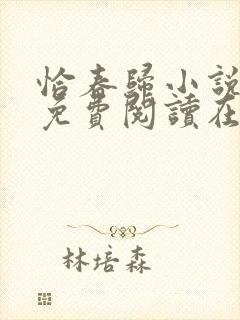 恰春歸小說
免費閱讀在
林培森